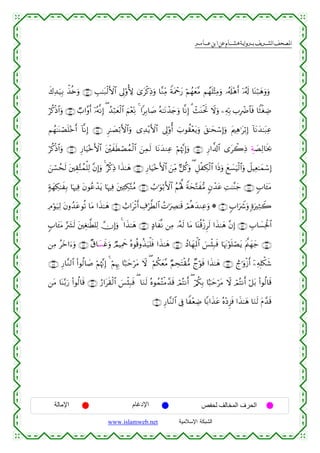 المصحف الشريف برواية هشام عن ابن عامر
وَوَهَبْنَا لَهُۥٓ أَهْلَهُۥ وَمِثْلَهُم مَّعَهُمْ رَحْمَةً مِّنَّا وَذِكْرَىٰ لِأُو۟لِى ٱلْأَلْبَٰبِ ۝ وَخُذْ بِيَدِكَ
ضِغْثًا فَٱضْرِب بِّهِۦ وَلَا تَحْنَثْ ۗ إِنَّا وَجَدْنَٰهُ صَابِرًا ۚ نِّعْمَ ٱلْعَبْدُ ۖ إِنَّهُۥٓ أَوَّابٌ ۝ وَٱذْكُرْ
عِبَٰدَنَآ إِبْرَٰهِيمَ وَإِسْحَٰقَ وَيَعْقُوبَ أُو۟لِى ٱلْأَيْدِى وَٱلْأَبْصَٰرِ ۝ إِنَّآ أَخْلَصْنَٰهُم
بِخَالِصَةِ ذِكْرَى ٱلدَّارِ ۝ وَإِنَّهُمْ عِندَنَا لَمِنَ ٱلْمُصْطَفَيْنَ ٱلْأَخْيَارِ ۝ وَٱذْكُرْ
إِسْمَٰعِيلَ وَٱلْيَسَعَ وَذَا ٱلْكِفْلِ ۖ وَكُلٌّ مِّنَ ٱلْأَخْيَارِ ۝ هَٰذَا ذِكْرٌ ۚ وَإِنَّ لِلْمُتَّقِينَ لَحُسْنَ
مَـَٔابٍ ۝ جَنَّٰتِ عَدْنٍ مُّفَتَّحَةً لَّهُمُ ٱلْأَبْوَٰبُ ۝ مُتَّكِـِٔينَ فِيهَا يَدْعُونَ فِيهَا بِفَٰكِهَةٍ
كَثِيرَةٍ وَشَرَابٍ ۝ وَعِندَهُمْ قَٰصِرَٰتُ ٱلطَّرْفِ أَتْرَابٌ ۝ هَٰذَا مَا تُوعَدُونَ لِيَوْمِ
ٱلْحِسَابِ ۝ إِنَّ هَٰذَا لَرِزْقُنَا مَا لَهُۥ مِن نَّفَادٍ ۝ هَٰذَا ۚ وَإِنَّ لِلطَّٰغِينَ لَشَرَّ مَـَٔابٍ
۝ جَهَنَّمَ يَصْلَوْنَهَا فَبِئْسَ ٱلْمِهَادُ ۝ هَٰذَا فَلْيَذُوقُوهُ حَمِيمٌ وَغَسَاقٌ ۝ وَءَاخَرُ مِن
شَكْلِهِۦٓ أَزْوَٰجٌ ۝ هَٰذَا فَوْجٌ مُّقْتَحِمٌ مَّعَكُمْ ۖ لَا مَرْحَبًۢا بِهِمْ ۚ إِنَّهُمْ صَالُوا۟ ٱلنَّارِ ۝
قَالُوا۟ بَلْ أَنتُمْ لَا مَرْحَبًۢا بِكُمْ ۖ أَنتُمْ قَدَّمْتُمُوهُ لَنَا ۖ فَبِئْسَ ٱلْقَرَارُ ۝ قَالُوا۟ رَبَّنَا مَن
قَدَّمَ لَنَا هَٰذَا فَزِدْهُ عَذَابًا ضِعْفًا فِى ٱلنَّارِ ۝
الحرف المخالف لحفص الإدغام الإمالة
الشبكة الإسلامية www.islamweb.net